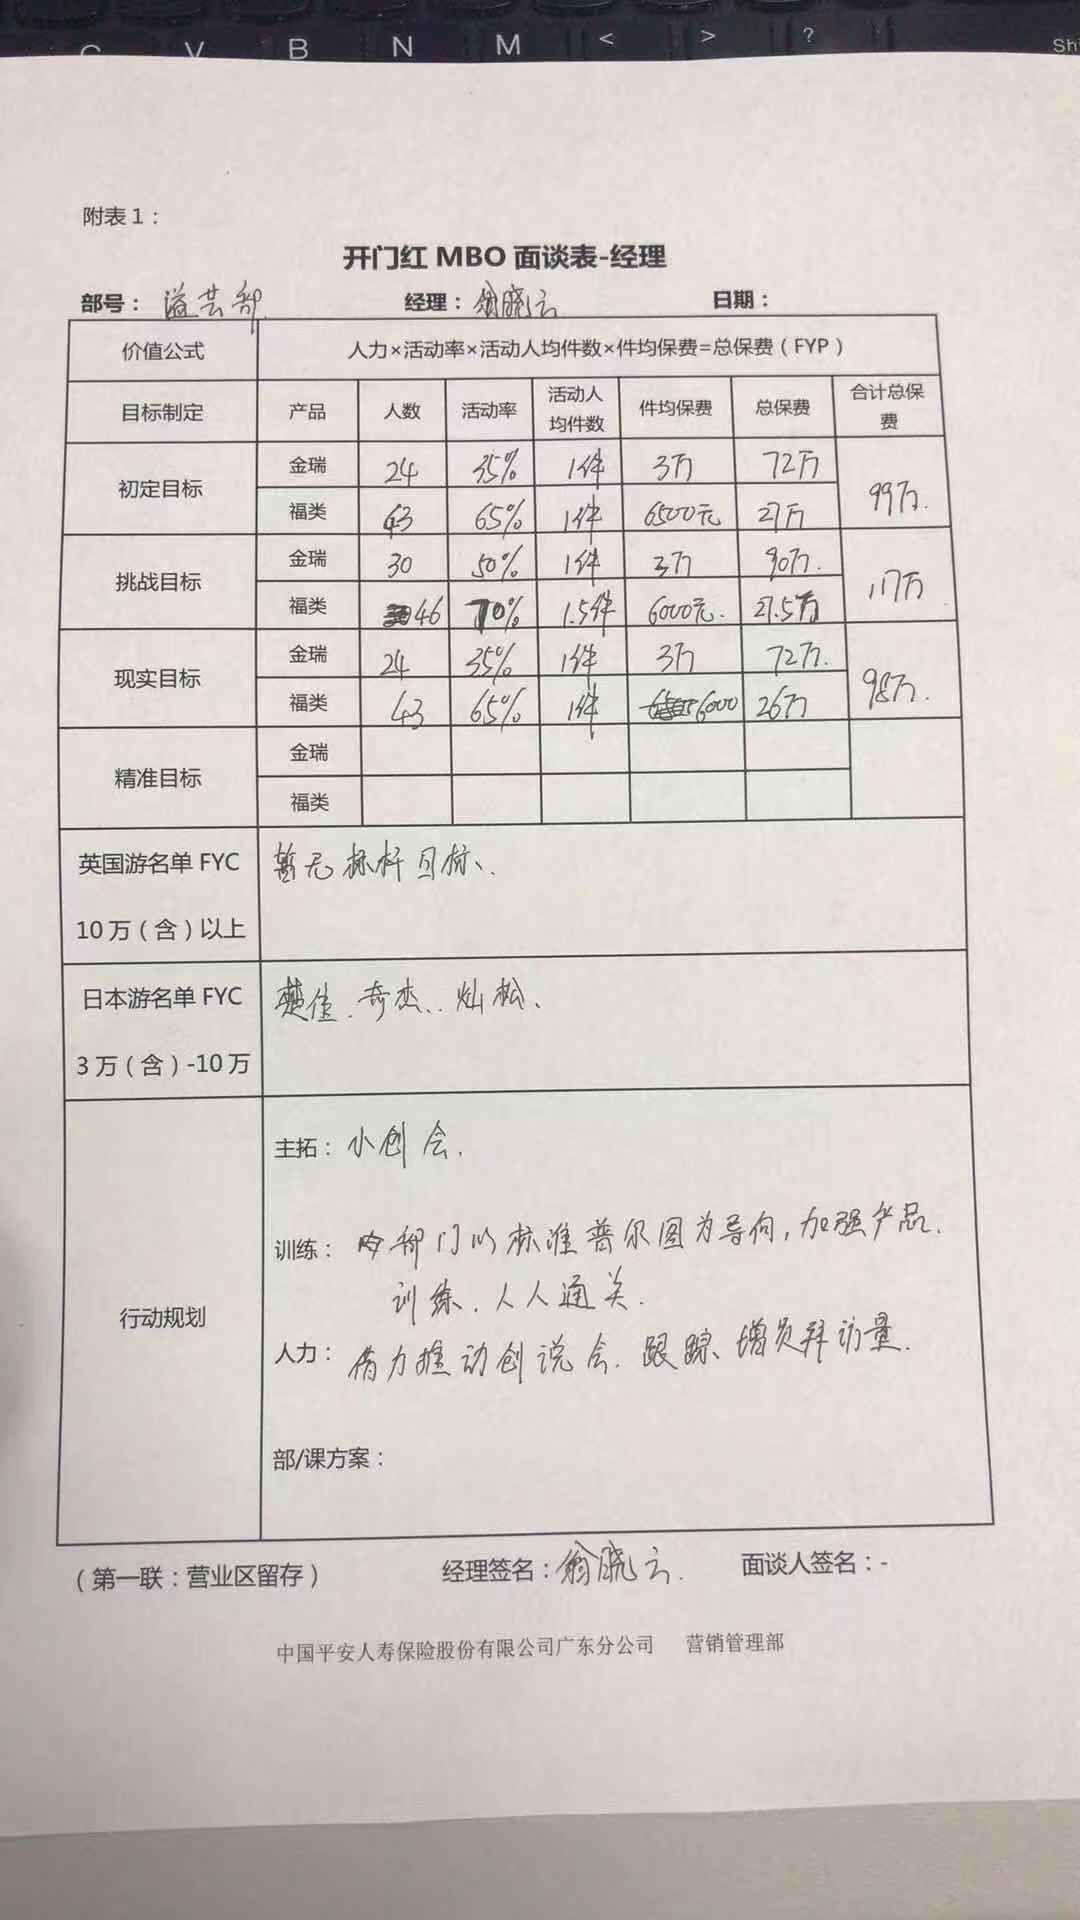 C V B N M < > ? Shi
附表1：
开门红 MBO 面谈表-经理
部号： 溢芸部 经理：翁晓云 日期：
价值公式 人力×活动率×活动人均件数×件均保费=总保费（FYP）
目标制定 产品 人数 活动率 活动人均件数 件均保费 总保费 合计总保费
初定目标 金瑞 24 35% 1件 3万 72万 99万.
福类 43 65% 1件 6500元 27万
挑战目标 金瑞 30 50% 1件 3万 90万. 117万
福类 46 70% 1.5件 6000元. 27.5万
现实目标 金瑞 24 35% 1件 3万 72万. 98万.
福类 43 65% 1件 6000 26万
精准目标 金瑞
福类
英国游名单 FYC 暂无标杆目标、
10万（含）以上
日本游名单 FYC 楚佳、奇杰、灿松、
3万（含）-10万
行动规划
主拓：小创会.
训练： 部门以标准普尔图为导向,加强产品.
训练、人人通关.
人力：借力推动创说会.跟踪、增员拜访量.
部/课方案：
（第一联：营业区留存） 经理签名：翁晓云. 面谈人签名：-
中国平安人寿保险股份有限公司广东分公司 营销管理部